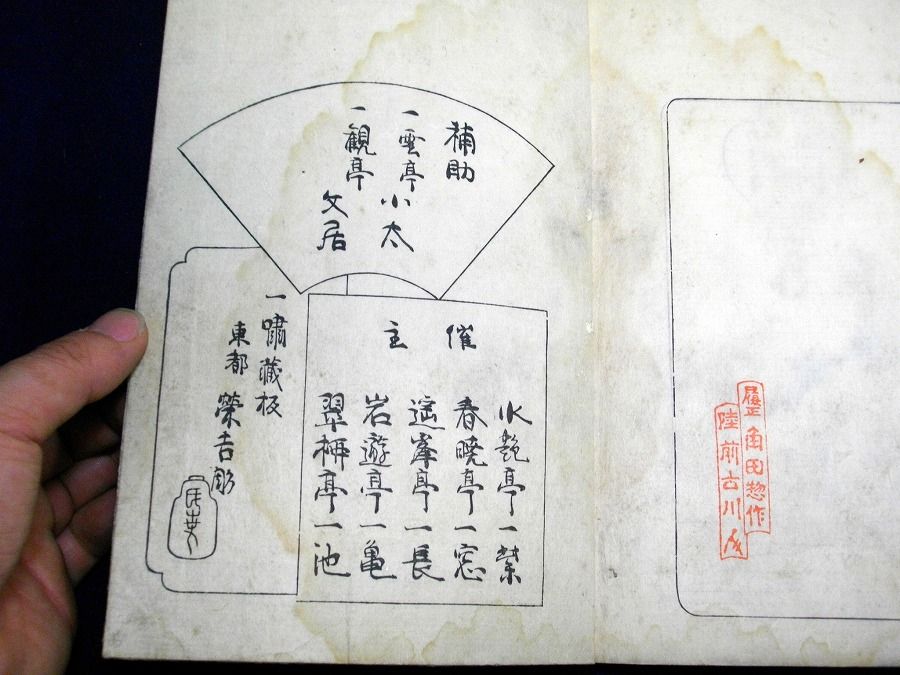 補助
一雲亭小太
一観亭文居
催主
水艶亭一禁
春暁亭一窓
遥峯亭一長
岩遊亭一亀
翠柳亭一池
一嘯蔵板
東都 榮吉彫
角田惣作
陸前古川